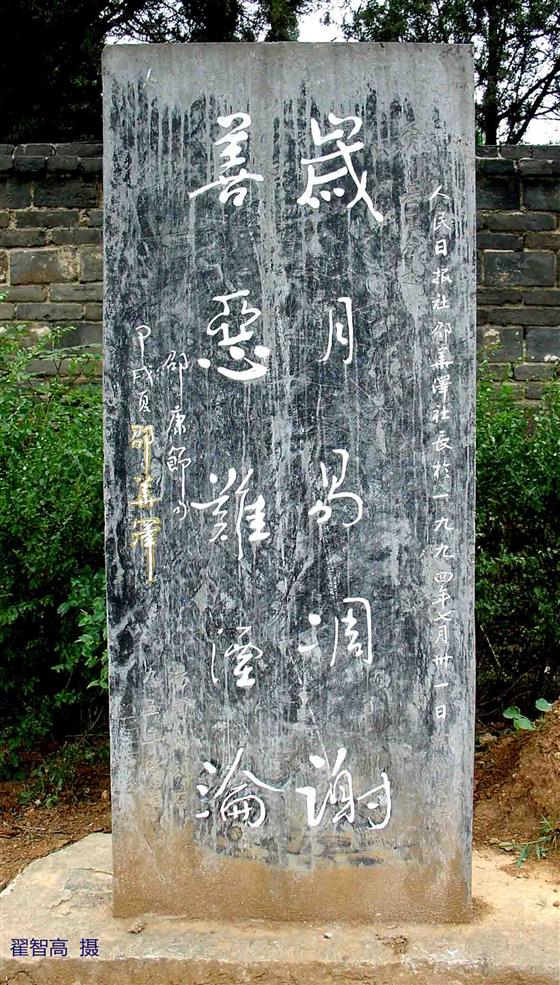 人民日报社邵華澤社長於一九九四年七月卅一日
歲月易凋謝
善惡難湮淪
邵康節句
甲戌夏 邵華澤
翟智高 摄